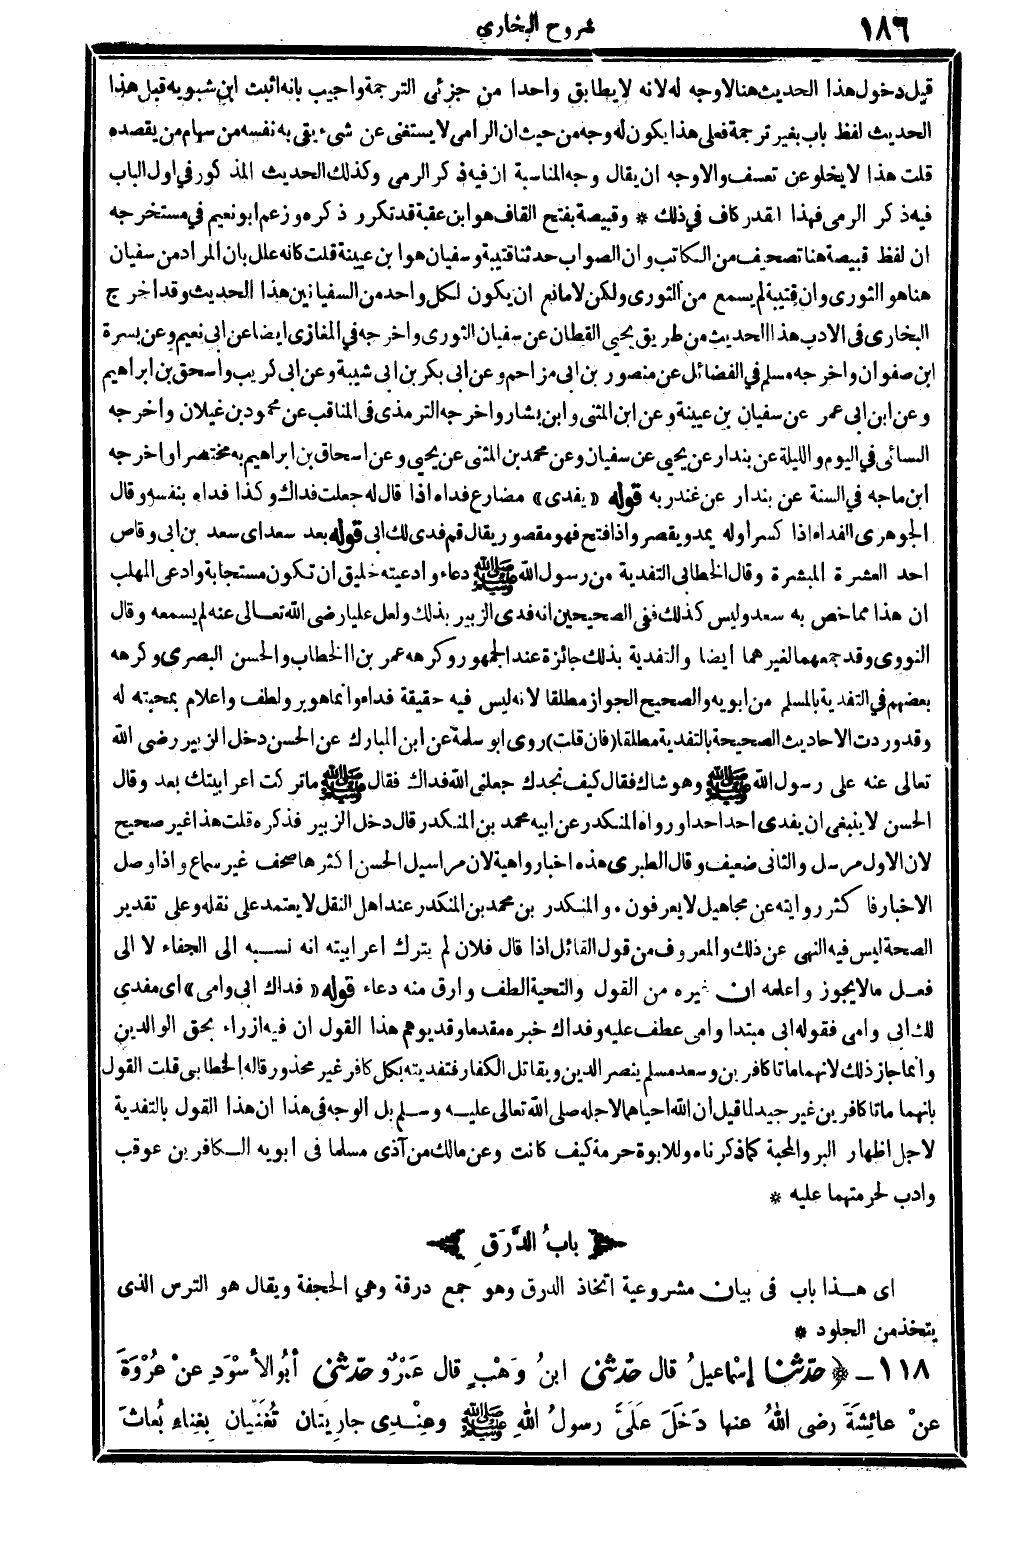 ١٨٦
شروح البخاري
قيل دخول هذا الحديث هنا لا وجه له لانه لا يطابق واحدا من جزئى الترجمة واجيب بانه اثبت ابن شبويه قبل هذا
الحديث لفظ باب بغير ترجمة فعلى هذا يكون له وجه من حيث ان الرامى لا يستغنى عن شىء يقى به نفسه من سهام من يقصده
قلت هذا لا يخلو عن تعسف والاوجه ان يقال وجه المناسبة ان فيه ذكر الرمى وكذلك الحديث المذكور في اول الباب
فيه ذكر الرمى فهذا القدر كاف في ذلك * وقبيصة بفتح القاف هو ابن عقبة قد تكرر ذكره وزعم ابو نعيم في مستخرجه
ان لفظ قبيصة هنا تصحيف من الكاتب وان الصواب حدثنا قتيبة وسفيان هو ابن عيينة قلت كانه علل بان المراد من سفيان
هنا هو الثورى وان قتيبة لم يسمع من الثورى ولكن لا مانع ان يكون لكل واحد من السفيانين هذا الحديث وقد اخرج
البخارى فى الادب هذا الحديث من طريق يحيى القطان عن سفيان الثورى واخرجه في المغازى ايضا عن ابى نعيم وعن بسرة
ابن صفوان واخرجه مسلم في الفضائل عن منصور بن ابى مزاحم وعن ابى بكر بن ابى شيبة وعن ابى كريب واسحق بن ابراهيم
وعن ابن ابى عمر عن سفيان بن عيينة وعن ابن المثنى وابن بشار واخرجه الترمذى فى المناقب عن محمود بن غيلان واخرجه
النسائى في اليوم والليلة عن بندار عن يحيى عن سفيان وعن محمد بن المثنى عن يحيى وعن اسحاق بن ابراهيم به مختصرا واخرجه
ابن ماجه في السنة عن بندار عن غندر به قوله «يفدى» مضارع فداه اذا قال له جعلت فداك وكذا فداه بنفسه وقال
الجوهرى الفداء اذا كسر اوله يمد ويقصر واذا فتح فهو مقصور يقال قم فدى لك ابى قوله بعد سعد اى سعد بن ابى وقاص
احد العشرة المبشرة وقال الخطابى التفدية من رسول الله ﷺ دعاء وادعيته خليق ان تكون مستجابة وادعى المهلب
ان هذا مما خص به سعد وليس كذلك ففى الصحيحين انه فدى الزبير بذلك ولعل عليا رضى الله تعالى عنه لم يسمعه وقال
النووى وقد جمعهما لغيرهما ايضا والتفدية بذلك جائزة عند الجمهور وكرهه عمر بن الخطاب والحسن البصرى وكرهه
بعضهم في التفدية بالمسلم من ابويه والصحيح الجواز مطلقا لانه ليس فيه حقيقة فداء وانما هو بر ولطف واعلام بمحبته له
وقد وردت الاحاديث الصحيحة بالتفدية مطلقا (فان قلت) روى ابو سلمة عن ابن المبارك عن الحسن دخل الزبير رضى الله
تعالى عنه على رسول الله ﷺ وهو شاك فقال كيف نجدك جعلنى الله فداك فقال ﷺ ما تركت اعرابيتك بعد وقال
الحسن لا ينبغى ان يفدى احد احدا ورواه المنكدر عن ابيه محمد بن المنكدر قال دخل الزبير فذكره قلت هذا غير صحيح
لان الاول مرسل والثانى ضعيف وقال الطبرى هذه اخبار واهية لان مراسيل الحسن اكثرها صحف غير سماع واذا وصل
الاخبار فاكثر روايته عن مجاهيل لا يعرفون . والمنكدر بن محمد بن المنكدر عند اهل النقل لا يعتمد على نقله وعلى تقدير
الصحة ليس فيه النهى عن ذلك والمعروف من قول القائل اذا قال فلان لم يترك اعرابيته انه نسبه الى الجفاء لا الى
فعل ما لا يجوز واعلمه ان غيره من القول والتحية الطف وارق منه دعاء قوله «فداك ابى وامى» اى مفدي
لك ابى وامى فقوله ابى مبتدا وامى عطف عليه وفداك خبره مقدما وقد يوهم هذا القول ان فيه ازراء بحق الوالدين
وانما جاز ذلك لانهما ماتا كافرين وسعد مسلم ينصر الدين ويقاتل الكفار فتفديته بكل كافر غير محذور قاله الخطابى قلت القول
بانهما ماتا كافرين غير جيد لما قيل ان الله احياهما لاجله صلى الله تعالى عليه وسلم بل الوجه فى هذا ان هذا القول بالتفدية
لاجل اظهار البر والمحبة كما ذكرناه وللابوة حرمة كيف كانت وعن مالك من آذى مسلما فى ابويه الكافرين عوقب
وادب لحرمتهما عليه *
باب الدَّرَقِ
اى هذا باب فى بيان مشروعية اتخاذ الدرق وهو جمع درقة وهي الحجفة ويقال هو الترس الذى
يتخذ من الجلود *
١١٨ - ﴿ حدّثنا إسْماعيلُ قال حدّثنى ابنُ وَهْبٍ قال عَمْرٌو حدّثنى أبُو الأسْوَدِ عنْ عُرْوَةَ
عنْ عائِشَةَ رضى اللهُ عنها دَخَلَ عَلَىَّ رسولُ اللهِ ﷺ وعِنْدِى جارِيَتانِ تُغَنِّيَانِ بِغِناءِ بُعاثَ